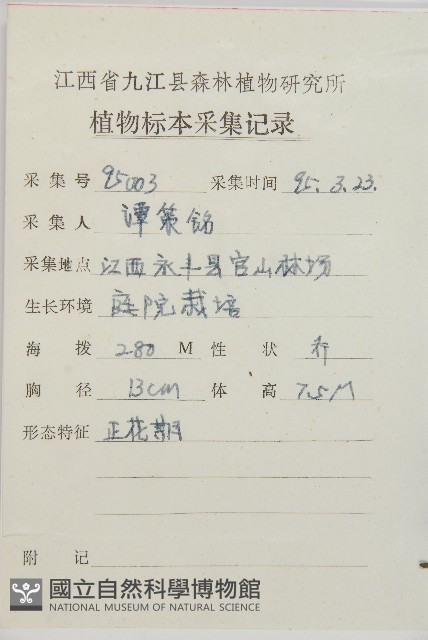 江西省九江县森林植物研究所
植物标本采集记录
采集号 95003 采集时间 95.3.23.
采集人 谭策铭
采集地点 江西永丰县官山林场
生长环境 庭院栽培
海拨 280 M 性状 乔
胸径 13cm 体高 7.5M
形态特征 正花期
附记
國立自然科學博物館
NATIONAL MUSEUM OF NATURAL SCIENCE